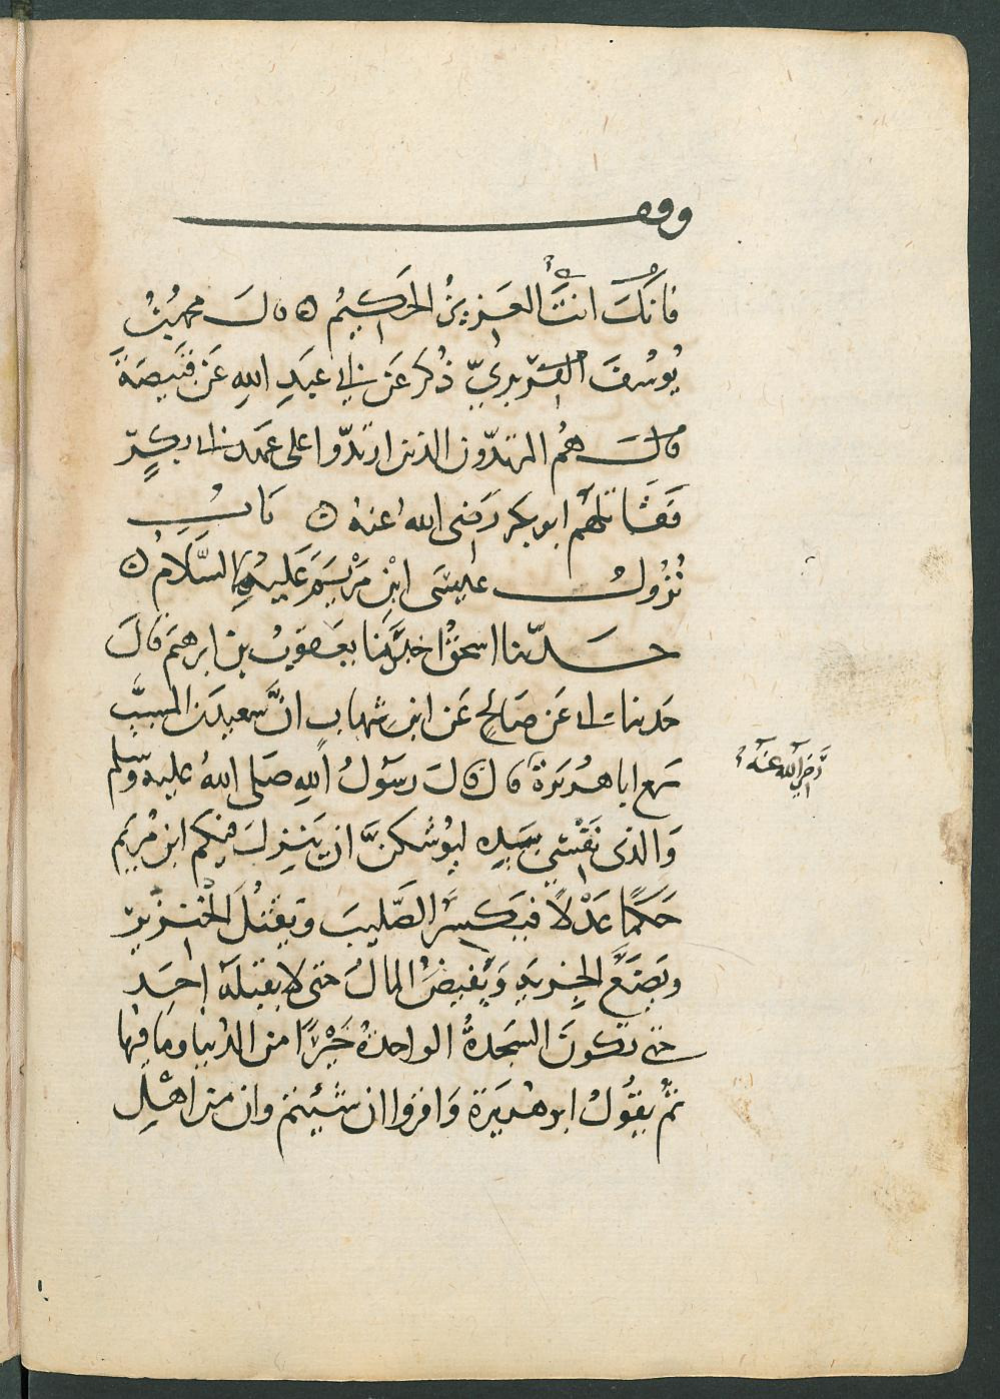 وقف
فانك انت العزيز الحكيم ۝ قال محمد بن
يوسف الفربري ذكر عن ابي عبد الله عن قبيصة
قال هم المرتدون الذين ارتدوا على عهد ابي بكر
فقاتلهم ابو بكر رضى الله عنه ۝ باب
نزول عيسى ابن مريم عليهما السلام ۝
حدثنا اسحق اخبرنا يعقوب بن ابرهيم قال
حدثنا ابي عن صالح عن ابن شهاب ان سعيد بن المسيب
سمع ابا هريرة قال قال رسول الله صلى الله عليه وسلم
رضي الله عنه
والذى نفسي بيده ليوشكن ان ينزل فيكم ابن مريم
حكما عدلا فيكسر الصليب ويقتل الخنزير
ويضع الجزية ويفيض المال حتى لا يقبله احد
حتى تكون السجدة الواحدة خيرا من الدنيا وما فيها
ثم يقول ابو هريرة واقروا ان شئتم وان من اهل